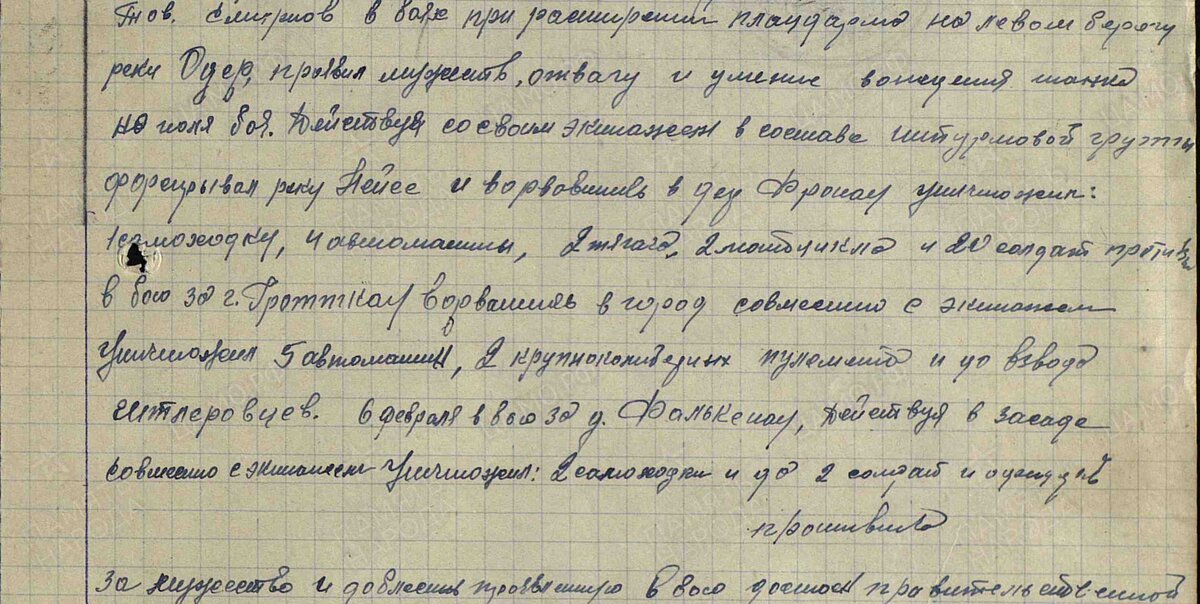 Тов. Смирнов в боях при расширении плацдарма на левом берегу
реки Одер, проявил мужеств, отвагу и умение вождения танка
на поля боя. Действуя со своим экипажем в составе штурмовой группы
форсировал реку Нейсе и ворвавшись в дер Фронау уничтожил:
1 самоходку, 4 автомашины, 2 тягача, 2 мотоцикла и 20 солдат против
в бою за г. Гротткау ворвавшись в город совместно с экипажем
уничтожил 5 автомашин, 2 крупнокалиберных пулемета и до взвода
гитлеровцев. 6 февраля в бою за д. Фалькенау, действуя в засаде
совместно с экипажем уничтожил: 2 самоходки и до 2 солдат и офицеров
противника
За мужество и доблесть проявленную в бою достоин правительственной